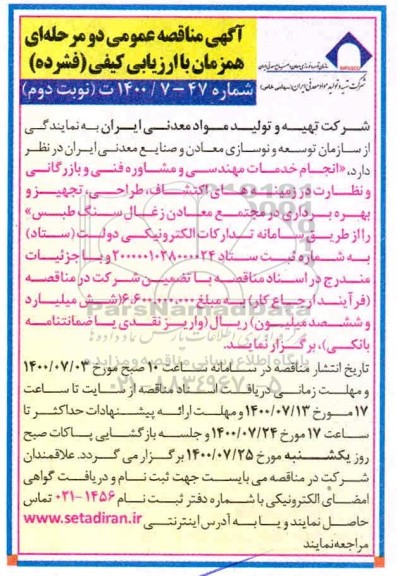 آگهی مناقصه عمومی دو مرحله‌ای
همزمان با ارزیابی کیفی (فشرده)
شماره ۴۷ - ۷ / ۱۴۰۰ ت (نوبت دوم)
شرکت تهیه و تولید مواد معدنی ایران
شرکت تهیه و تولید مواد معدنی ایران به نمایندگی
از سازمان توسعه و نوسازی معادن و صنایع معدنی ایران در نظر
دارد، «انجام خدمات مهندسی و مشاوره فنی و بازرگانی
و نظارت در زمینه های اکتشاف، طراحی، تجهیز و
بهره برداری در مجتمع معادن زغال سنگ طبس»
را از طریق سامانه تدارکات الکترونیکی دولت (ستاد)
به شماره ثبت ستاد ۲۰۰۰۰۰۱۰۲۸۰۰۰۰۲۴ و با جزئیات
مندرج در اسناد مناقصه با تضمین شرکت در مناقصه
(فرآیند ارجاع کار) به مبلغ ۶،۶۰۰،۰۰۰،۰۰۰ (شش میلیارد
و ششصد میلیون) ریال (واریز نقدی یا ضمانتنامه
بانکی)، برگزار نمایند.
تاریخ انتشار مناقصه در سامانه ساعت ۱۰ صبح مورخ ۱۴۰۰/۰۷/۰۳
و مهلت زمانی دریافت اسناد مناقصه از سایت تا ساعت
۱۷ مورخ ۱۴۰۰/۰۷/۱۳ و مهلت ارائه پیشنهادات حداکثر تا
ساعت ۱۷ مورخ ۱۴۰۰/۰۷/۲۴ و جلسه بازگشایی پاکات صبح
روز یکشنبه مورخ ۱۴۰۰/۰۷/۲۵ برگزار می گردد. علاقمندان
شرکت در مناقصه می بایست جهت ثبت نام و دریافت گواهی
امضای الکترونیکی با شماره دفتر ثبت نام ۱۴۵۶-۰۲۱ تماس
حاصل نمایند و یا به آدرس اینترنتی www.setadiran.ir
مراجعه نمایند